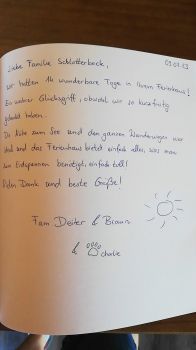 09.07.23
Liebe Familie Schlotterbeck,
wir hatten 14 wunderbare Tage in Ihrem Ferienhaus!
Ein wahrer Glücksgriff, obwohl wir so kurzfristig
gebucht haben.
Die Nähe zum See und den ganzen Wanderwegen war
ideal und das Ferienhaus bietet einfach alles, was man
zum Entspannen benötigt, einfach toll!
Vielen Dank und beste Grüße!
Fam Deiter & Braun
& Charlie